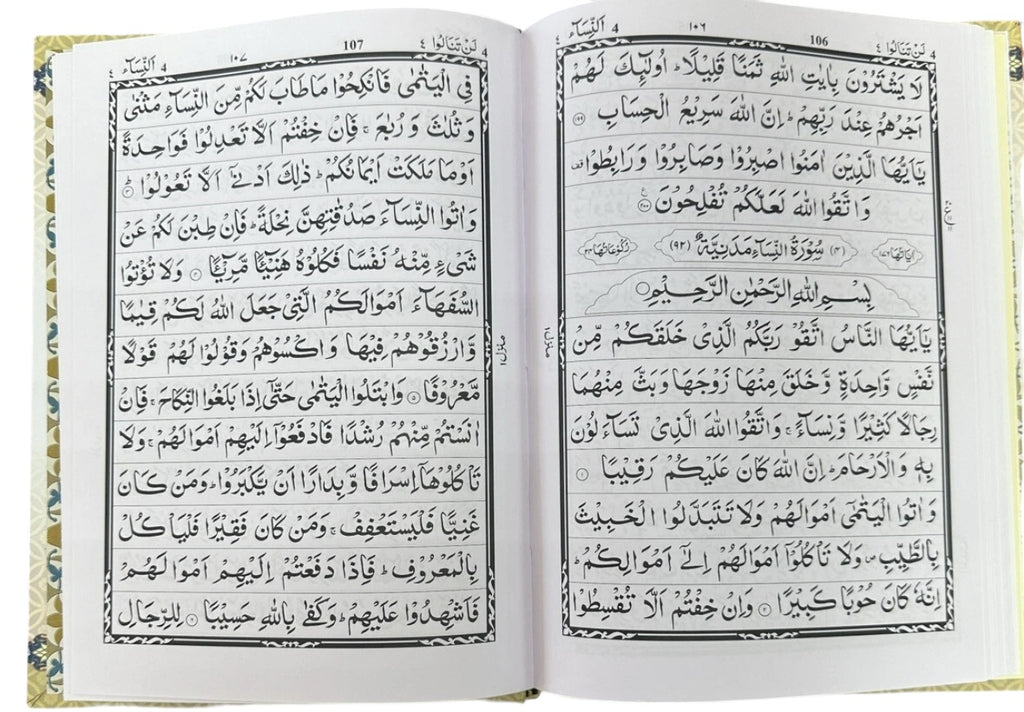 لَنْ تَنَالُوا ٤
106
١٠٦
اَلنِّسَآء 4
لَا يَشْتَرُوْنَ بِاٰيٰتِ اللّٰهِ ثَمَنًا قَلِيْلًا ؕ اُولٰٓئِكَ لَهُمْ
اَجْرُهُمْ عِنْدَ رَبِّهِمْ ؕ اِنَّ اللّٰهَ سَرِيْعُ الْحِسَابِ ١٩٩
يٰٓاَيُّهَا الَّذِيْنَ اٰمَنُوا اصْبِرُوْا وَصَابِرُوْا وَرَابِطُوْا قف
وَاتَّقُوا اللّٰهَ لَعَلَّكُمْ تُفْلِحُوْنَ ٢٠٠
اٰيَاتُهَا ١٧٦ (٤) سُوْرَةُ النِّسَآءِ مَدَنِيَّةٌ (٩٢) رُكُوْعَاتُهَا ٢٤
بِسْمِ اللّٰهِ الرَّحْمٰنِ الرَّحِيْمِ
يٰٓاَيُّهَا النَّاسُ اتَّقُوْا رَبَّكُمُ الَّذِيْ خَلَقَكُمْ مِّنْ
نَّفْسٍ وَّاحِدَةٍ وَّخَلَقَ مِنْهَا زَوْجَهَا وَبَثَّ مِنْهُمَا
رِجَالًا كَثِيْرًا وَّنِسَآءً ۚ وَاتَّقُوا اللّٰهَ الَّذِيْ تَسَآءَلُوْنَ
بِهٖ وَالْاَرْحَامَ ؕ اِنَّ اللّٰهَ كَانَ عَلَيْكُمْ رَقِيْبًا ١
وَاٰتُوا الْيَتٰمٰٓى اَمْوَالَهُمْ وَلَا تَتَبَدَّلُوا الْخَبِيْثَ
بِالطَّيِّبِ ۪ وَلَا تَاْكُلُوْٓا اَمْوَالَهُمْ اِلٰٓى اَمْوَالِكُمْ ؕ
اِنَّهٗ كَانَ حُوْبًا كَبِيْرًا ٢ وَاِنْ خِفْتُمْ اَلَّا تُقْسِطُوْا
منزل ١
لَنْ تَنَالُوا ٤
107
١٠٧
اَلنِّسَآء 4
فِى الْيَتٰمٰى فَانْكِحُوْا مَا طَابَ لَكُمْ مِّنَ النِّسَآءِ مَثْنٰى
وَثُلٰثَ وَرُبٰعَ ۚ فَاِنْ خِفْتُمْ اَلَّا تَعْدِلُوْا فَوَاحِدَةً
اَوْ مَا مَلَكَتْ اَيْمَانُكُمْ ؕ ذٰلِكَ اَدْنٰٓى اَلَّا تَعُوْلُوْا ؕ ٣
وَاٰتُوا النِّسَآءَ صَدُقٰتِهِنَّ نِحْلَةً ؕ فَاِنْ طِبْنَ لَكُمْ عَنْ
شَىْءٍ مِّنْهُ نَفْسًا فَكُلُوْهُ هَنِيْٓئًا مَّرِيْٓئًا ٤ وَلَا تُؤْتُوا
السُّفَهَآءَ اَمْوَالَكُمُ الَّتِىْ جَعَلَ اللّٰهُ لَكُمْ قِيٰمًا
وَّارْزُقُوْهُمْ فِيْهَا وَاكْسُوْهُمْ وَقُوْلُوْا لَهُمْ قَوْلًا
مَّعْرُوْفًا ٥ وَابْتَلُوا الْيَتٰمٰى حَتّٰٓى اِذَا بَلَغُوا النِّكَاحَ ۚ فَاِنْ
اٰنَسْتُمْ مِّنْهُمْ رُشْدًا فَادْفَعُوْٓا اِلَيْهِمْ اَمْوَالَهُمْ ۚ وَلَا
تَاْكُلُوْهَآ اِسْرَافًا وَّبِدَارًا اَنْ يَّكْبَرُوْا ؕ وَمَنْ كَانَ
غَنِيًّا فَلْيَسْتَعْفِفْ ۚ وَمَنْ كَانَ فَقِيْرًا فَلْيَاْكُلْ
بِالْمَعْرُوْفِ ؕ فَاِذَا دَفَعْتُمْ اِلَيْهِمْ اَمْوَالَهُمْ
فَاَشْهِدُوْا عَلَيْهِمْ ؕ وَكَفٰى بِاللّٰهِ حَسِيْبًا ٦ لِلرِّجَالِ
منزل ١